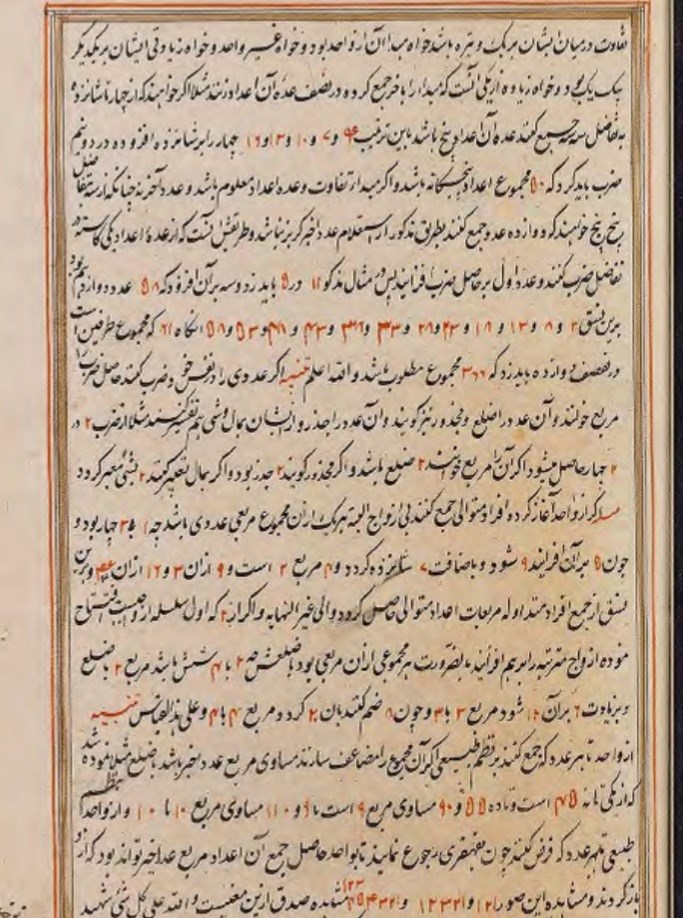 تفاوت در میان ایشان بر یک وتیره باشد خواه مبدا آن از واحد بود و خواه غیر واحد و خواه زیادتی ایشان بر یکدیگر
بیک یک بود و خواه زیاده از یکی آنست که مبدا را با خر جمع کرده در نصف عده آن اعداد زنند مثلا اگر خواهند که از چهار تا شانزده
جمع کنند عده آن اعداد پنج باشد باین ترتیب ۴ و ۷ و ۱۰ و ۱۳ و ۱۶ چهار را بر شانزده افزوده در دو و نیم
ضرب باید کرد که ۵۰ مجموع اعداد پنجگانه باشد و اگر مبدا و تفاوت و عده اعداد معلوم باشد و عدد آخر نه چنانکه از سه تفاضل
پنج پنج خواهند که دوازده عدد جمع کنند بطریق مذکور از استعلام عدد اخیر گریز نباشد و طریقش آنست که از عده اعداد یکی کاسته در
تفاضل ضرب کنند و عدد اول بر حاصل ضرب افزایند پس در مثال مذکور ۱۱ در ۵ باید زد و سه بر آن افزود که ۵۸ عدد دوازدهم بود
برین نسق ۳ و ۸ و ۱۳ و ۱۸ و ۲۳ و ۲۸ و ۳۳ و ۳۸ و ۴۳ و ۴۸ و ۵۳ و ۵۸ آنگاه ۶۱ که مجموع طرفین است
در نصف دوازده باید زد که ۳۶۶ مجموع مطلوب باشد و الله اعلم تنبیه اگر عددی را در نفس خود ضرب کنند حاصل ضرب را
مربع خوانند و آن عدد را ضلع و مجذور نیز گویند و آن عدد را جذر و از ایشان بمال و شی هم تعبیر کنند مثلا از ضرب ۲ در
۲ چهار حاصل میشود اگر آن را مربع خوانند ۲ ضلع باشد و اگر مجذور گویند ۲ جذر بود و اگر بمال تعبیر کنند ۲ بشی معبر گردد
اگر از واحد آغاز کرده افراد متوالی جمع کنند بی ازواج البته هر یک از آن مجموع مربع عددی باشد چه ۱ با ۳ چهار بود و
چون ۵ بر آن افزایند ۹ شود و باضافت ۷ شانزده گردد و ۴ مربع ۲ است و ۹ از آن ۳ و ۱۶ از آن ۴ و برین
نسق از جمع افراد مبتدا اوله مربعات اعداد متوالی حاصل گردد و الی غیر النهایه و اگر از ۲ که اول سلسله ازواجست افتتاح
نموده ازواج مترتبه را بر هم افزایند بالضرورت هر مجموعی از آن مربعی بود با ضلعش چه ۲ با ۴ شش باشد مربع ۲ با ضلع
و بزیادت ۶ بر آن ۱۲ شود مربع ۳ با ۳ و چون ۸ ضم کنند با آن ۲۰ گردد مربع ۴ با ۴ و علی هذا القیاس تنبیه
از واحد تا هر عدد که جمع کنند بر نظم طبیعی اگر آن مجموع را مضاعف سازند مساوی مربع عدد اخیر باشد با ضلع مثلا نموده شد
که از یکی تا نه ۴۵ است و تا ده ۵۵ و ۹۰ مساوی مربع ۹ است با ۹ و ۱۱۰ مساوی مربع ۱۰ با ۱۰ و از واحد بنظم
طبیعی تا هر عدد که فرض کنند چون بقهقری رجوع نمایند تا بواحد حاصل جمع آن اعداد مربع عدد اخیر تواند بود که از او
باز گردند و مشاهده این صور ۱۲۱ و ۱۲۳۲۱ و ۱۲۳۴۳۲۱ مشاهده صدق ازین معنیست و الله علی کل شی شهید